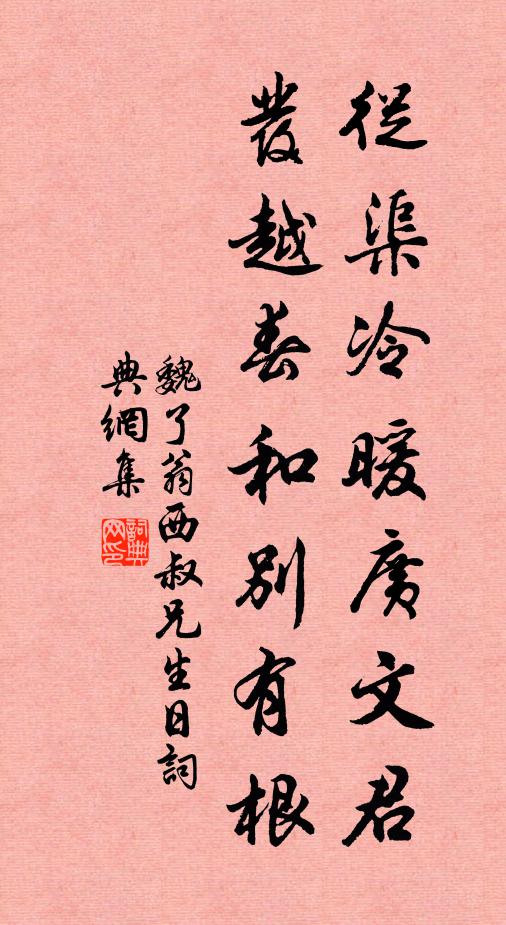 從渠冷暖廣文君
發越春和別有根
魏了翁西叔兄生日詞
典網集
詞典網印